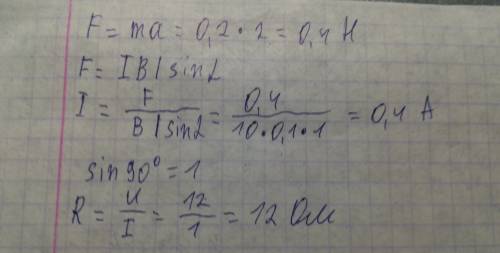 F = ma = 0,2 • 2 = 0,4 Н
F = IBl sinα
I = F / B l sinα = 0,4 / 10 • 0,1 • 1 = 0,4 А
sin 90° = 1
R = U / I = 12 / 1 = 12 Ом